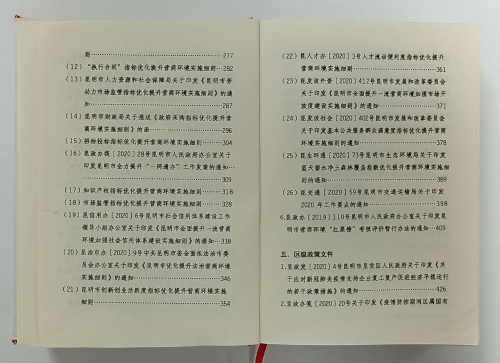 则………………277
（12）“执行合同”指标优化提升营商环境实施细则……282
（13）昆明市人力资源和社会保障局关于印发《昆明市劳
动力市场监管指标优化提升营商环境实施细则》的通
知………………287
（14）昆明市财政局关于报送《政府采购指标优化提升营
商环境实施细则》的函………………296
（15）招标投标指标优化提升营商环境实施细则………304
（16）昆政办〔2020〕28号昆明市人民政府办公室关于
印发昆明市全力提升“一网通办”工作方案的通知…
………………309
（17）知识产权指标优化提升营商环境实施细则………318
（18）市场监管指标优化提升营商环境实施细则………328
（19）昆信用办〔2020〕6号昆明市社会信用体系建设工作
领导小组办公室关于印发《昆明市全面提升一流营商
环境加强社会信用体系建设实施细则》的通知…338
（20）昆法治市办〔2020〕9号中共昆明市委全面依法治市委
员会办公室关于印发《昆明市优化提升法治营商环境
实施细则》的通知………………346
（21）昆明市创新创业活跃度指标优化提升营商环境实施
细则………………354
（22）昆人才办〔2020〕3号人才流动便利度指标优化提升
营商环境实施细则………………361
（23）昆发改外资〔2020〕412号昆明市发展和改革委员会
关于印发《昆明市全面提升一流营商环境加强市场开
放度建设实施细则》的通知………………371
（24）昆发改社会〔2020〕402号昆明市发展和改革委员会
关于印发基本公共服务群众满意度指标优化提升营商
环境实施细则的通知………………378
（25）昆生环通〔2020〕73号昆明市生态环境局关于印发
蓝天碧水净土森林覆盖指数优化提升营商环境实施细
则的通知………………389
（26）昆交通〔2020〕59号昆明市交通运输局关于印发
2020年工作要点的通知………………398
6.昆政办〔2019〕110号昆明市人民政府办公室关于印发昆
明市营商环境“红黑榜”考核评价暂行办法的通知…409
五、区级政策文件
1.呈政发〔2020〕4号昆明市呈贡区人民政府关于印发《关
于应对新冠肺炎疫情支持企业复工复产促进经济平稳运行
的若干政策措施》的通知………………426
2.呈政办笺〔2020〕20号关于印发《疫情防控期间区属国有